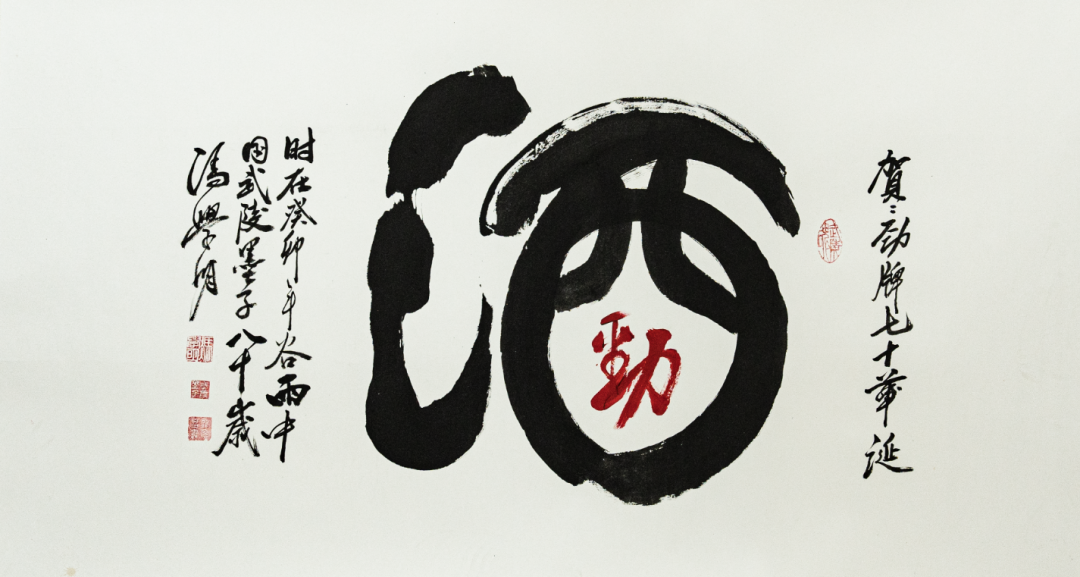 賀：劲牌七十華诞
酒
勁
时在癸卯年谷雨中
国武陵墨子八十歲
馮學明